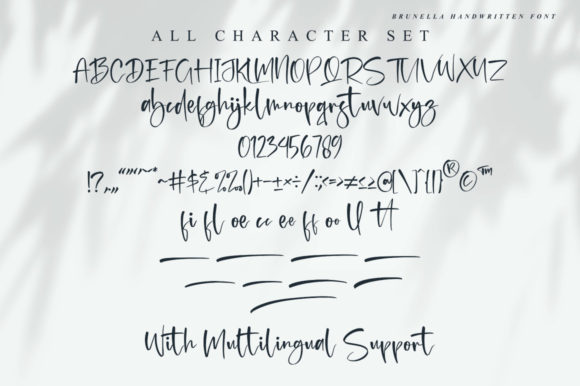 BRUNELLA HANDWRITTEN FONT
ALL CHARACTER SET
ABCDEFGHIJKLMNOPQRSTUVWXYZ
abcdefghijklmnopqrstuvwxyz
0123456789
!?,.„“”‘’~*~#$&%‰()+-±×÷/:;<=>≠≤≥@[\]^{|}®©™
fi fl oe cc ee ff oo ll tt
With Multilingual Support